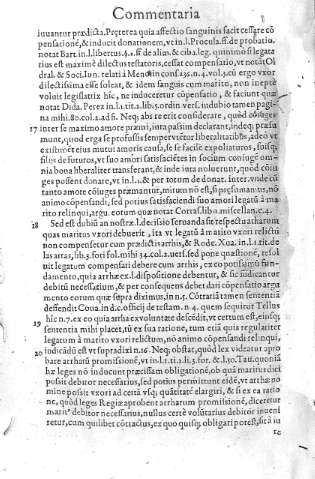 Commentaria
iuuantur prædicta. Pręterea quia affectio sanguinis facit cessare cō
pensationē, & inducit donationem, vt in l. Procula. ff. de probatio.
notat Bart. in l. libertus. §. ff. de alim. & ciba. leg. quinimo si legata
rius est maximè dilectus testatoris, cessat compensatio, vt notāt Ol
dral. & Soci. Iun. relati à Menoch in cōs. n. 4. vol. 3. cū ergo vxor
dilectissima esse soleat, & idem sanguis cum marito, non ineptè
voluit legislatrix hîc, ne induceretur cōpensatio, & faciunt quæ
notat Dida. Perez in l. 1. tit. 2. lib. 5. ordin. vers. in dubio tamen pagi-
na mihi 80. col. 2. ad fi. Neq; abs re erit considerate, quòd cōiuges
17 inter se maximo amore præmi, inta passim declarant, indeq; præsu
munt, quod erga se profussis semper vtētur liberalitatibus, adeo vt
existiment eius mutui amoris causa, se se facile expoliaturos, suisq;
filijs de futuros, vt suo amori satisfacietes in socium coniugē om-
nia bona liberaliter transferant, & inde iura noluerunt, quòd cōiu
ges possent donare, vt in l. 1. & per totum de donat. inter. vnde cū
tanto amore cōiuges præmantur, mirum nō est, si pręsumamus, nō
animo cōpensandi, sed potius satisfaciendi suo amori legatū à ma
rito relinqui, argu. eorum quæ notat Corras. lib. miscellan. c. 4.
18 Sed est dubiū an nostræ l. decisio seruanda sit respectu arrharum
quas maritus vxori debuerit, ita vt legatū à marito vxori relictū
non compensetur cum prædictis arrhis, & Rode. Xua. in l. 1. tit. de
las arras, lib. 3. fori fol. mihi 34. col. 2. vers. sed pone quæstionē, resol
uit legatum compensari debere cum arrhis, ex eo potissimū fun-
damento, quia arrhæ ex l. dispositione debentur, & sic iudicantur
debitū necessarium, & per consequens debet dari cōpensatio argu
mento eorum quæ supra diximus, in n. 7. Cōtrariā tamen sententiā
defendit Coua. in d. c. officij de testam. n. 4. quem sequitur Tellus
hîc n. 7. ex eo quia arrhæ ex volūtate descēdūt, vt certum est, eiusq;
19 sententia mihi placet, tū ex sua ratione, tum etiā quia regulariter
legatum à marito vxori relictum, nō animo cōpensandi relinqui,
20 indicādū est vt supra dixi n. 16. Neq; obstat, quòd lex videatur apro
bare arrharū promissionē, vt in l. 1. tit. 2. li. 3. for. & l. 50. Tau. quoniā
hæ leges nō inducunt præcissam obligationē, ob quā mariti dici
possit debitor necessarius, sed potius permittunt eidē, vt arrhæ no
mine possit vxori ad certā vsq; quātitatē elargiri, & si ex ea ratio
ne, quòd leges Regiæ probent arrharum promissionē, diceretur
marit⁹ debitor necessarius, nullus certè volūtarius debitor inueni
retur, cum quilibet cōtractus, ex quo quisq; obligari potest, sit à iu